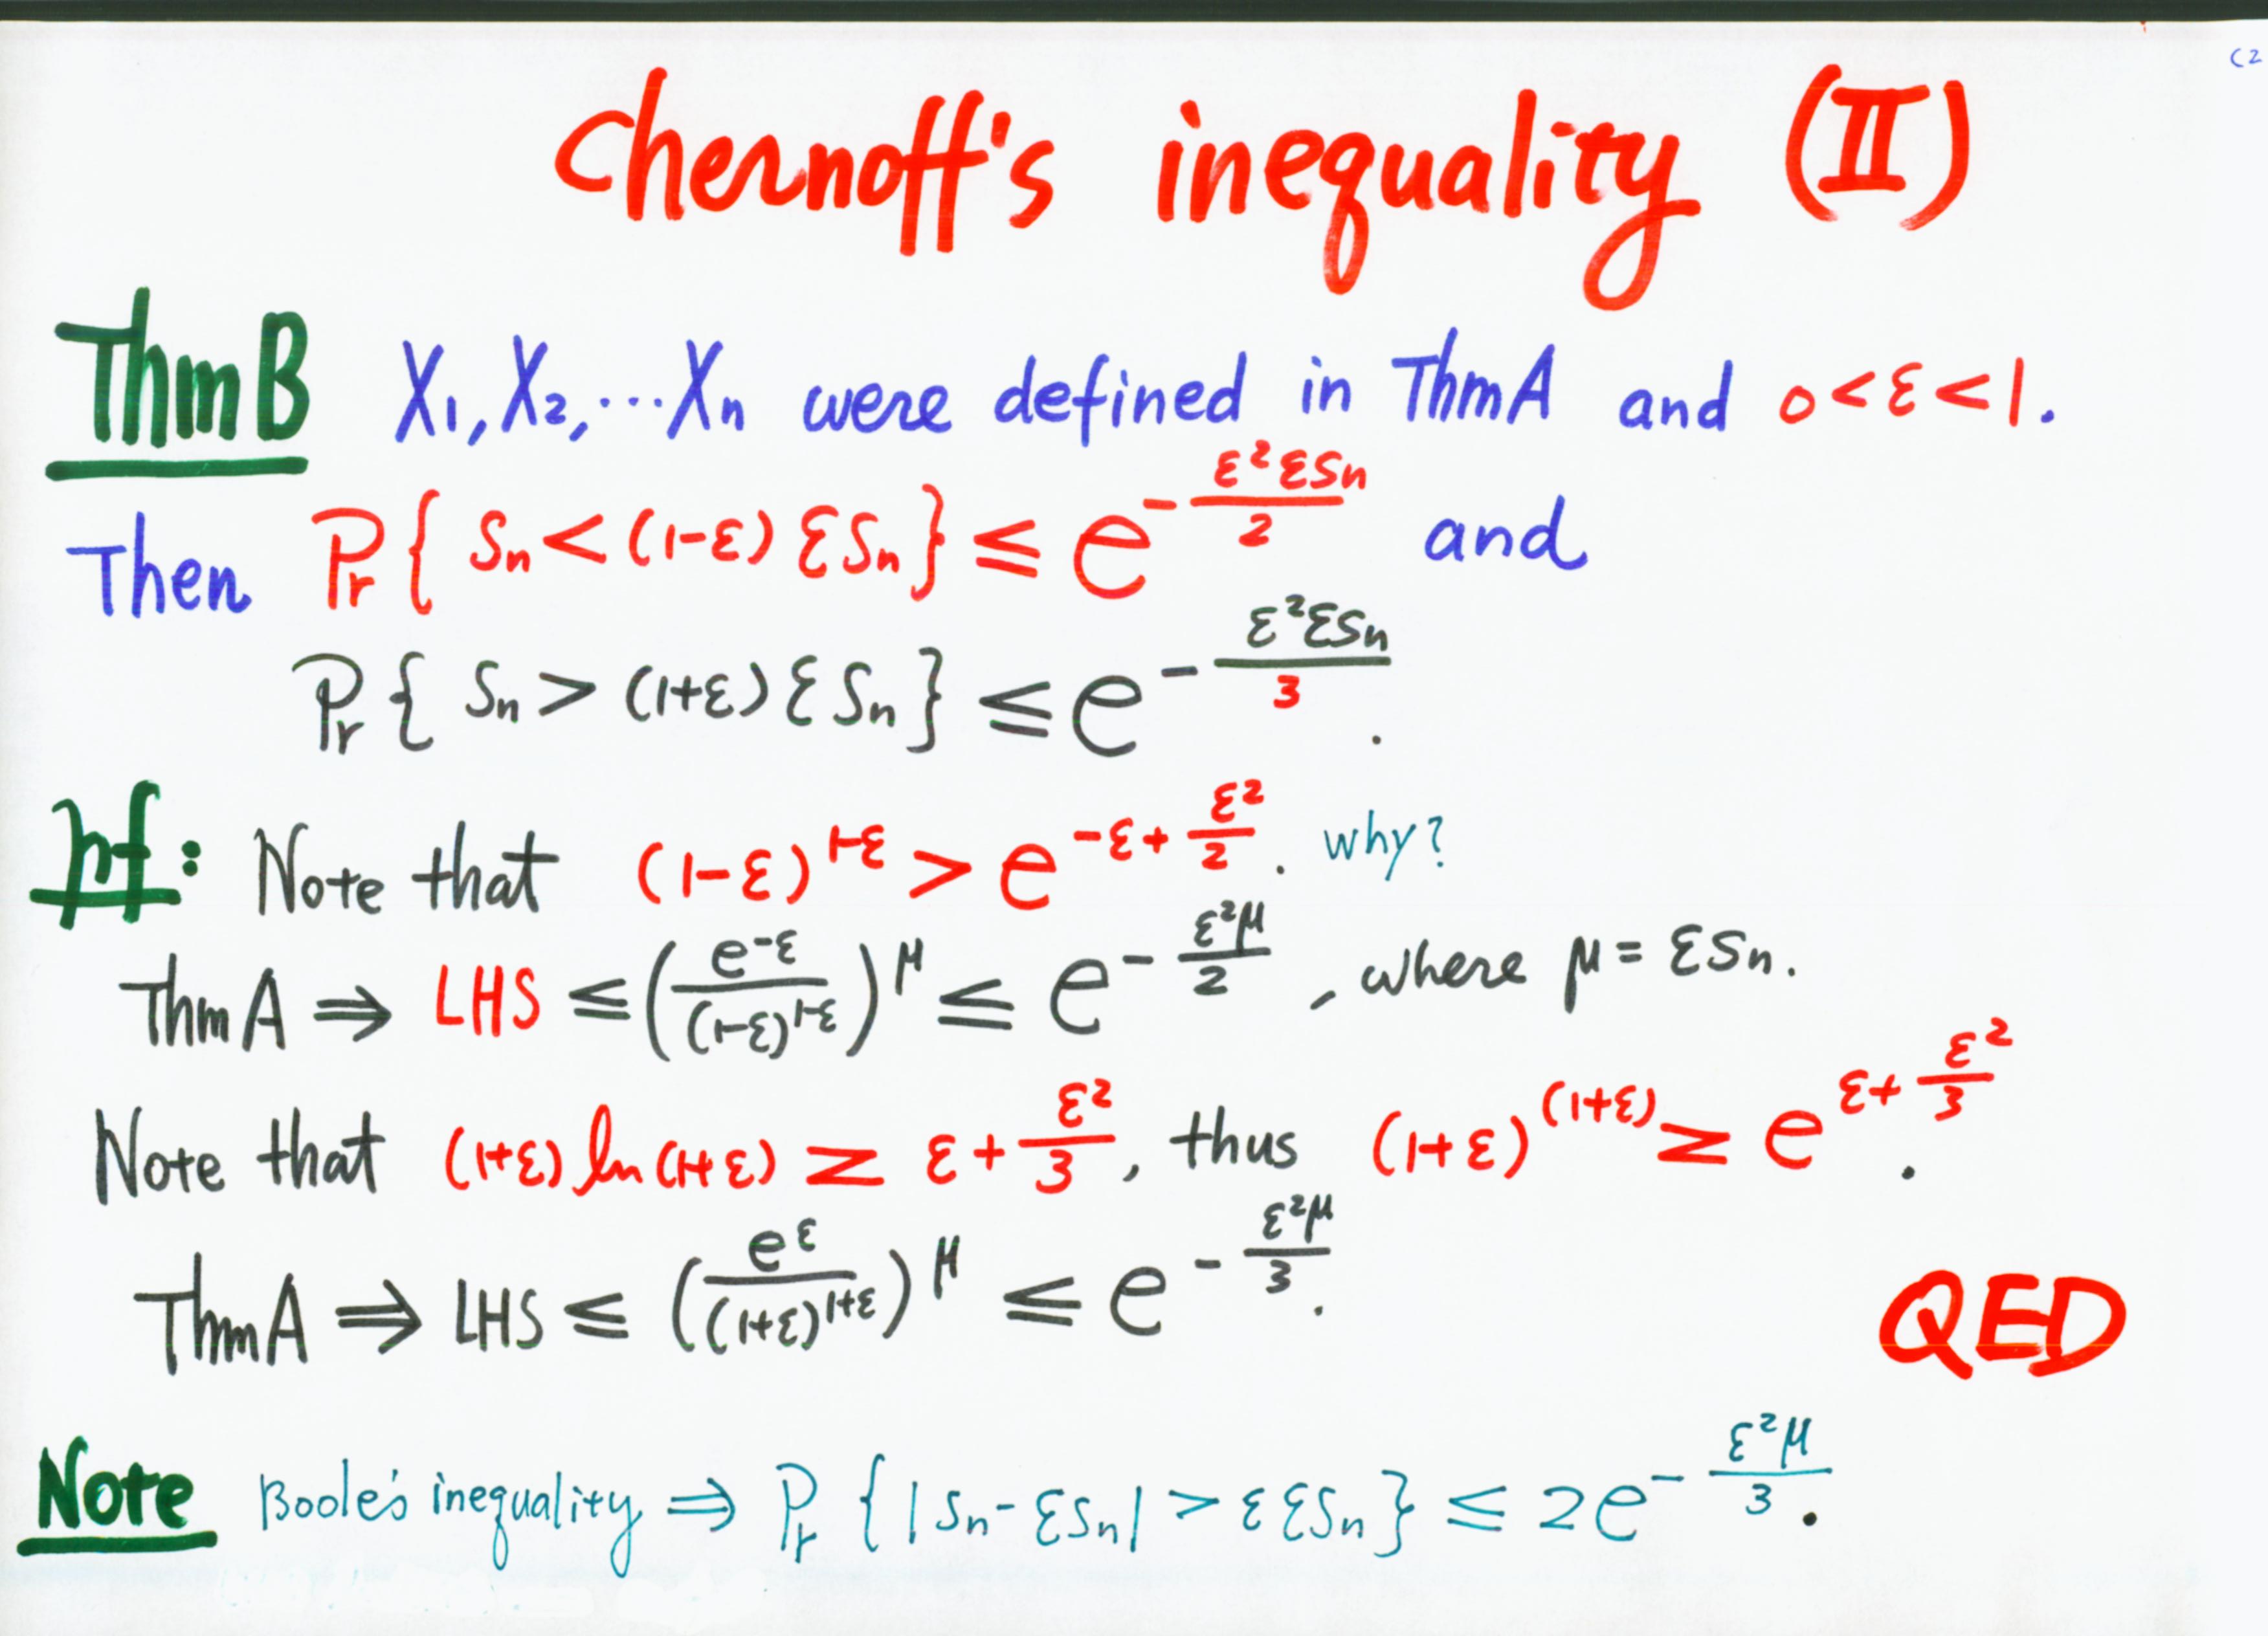 C2
Chernoff's inequality (II)
Thm B X₁, X₂, ⋯ Xₙ were defined in Thm A and 0 < ε < 1.
Then Pr{ Sₙ < (1-ε) ℰSₙ } ≤ e^{-ε²ℰSₙ/2} and
Pr{ Sₙ > (1+ε) ℰSₙ } ≤ e^{-ε²ℰSₙ/3}.
pf: Note that (1-ε)^{1-ε} > e^{-ε+ε²/2}. why?
Thm A ⇒ LHS ≤ (e^{-ε}/(1-ε)^{1-ε})^μ ≤ e^{-ε²μ/2}, where μ = ℰSₙ.
Note that (1+ε) ln(1+ε) ≥ ε + ε²/3, thus (1+ε)^{(1+ε)} ≥ e^{ε+ε²/3}.
Thm A ⇒ LHS ≤ (e^ε/(1+ε)^{1+ε})^μ ≤ e^{-ε²μ/3}.
QED
Note Boole's inequality ⇒ Pr { |Sₙ - ℰSₙ| > ε ℰSₙ } ≤ 2e^{-ε²μ/3}.